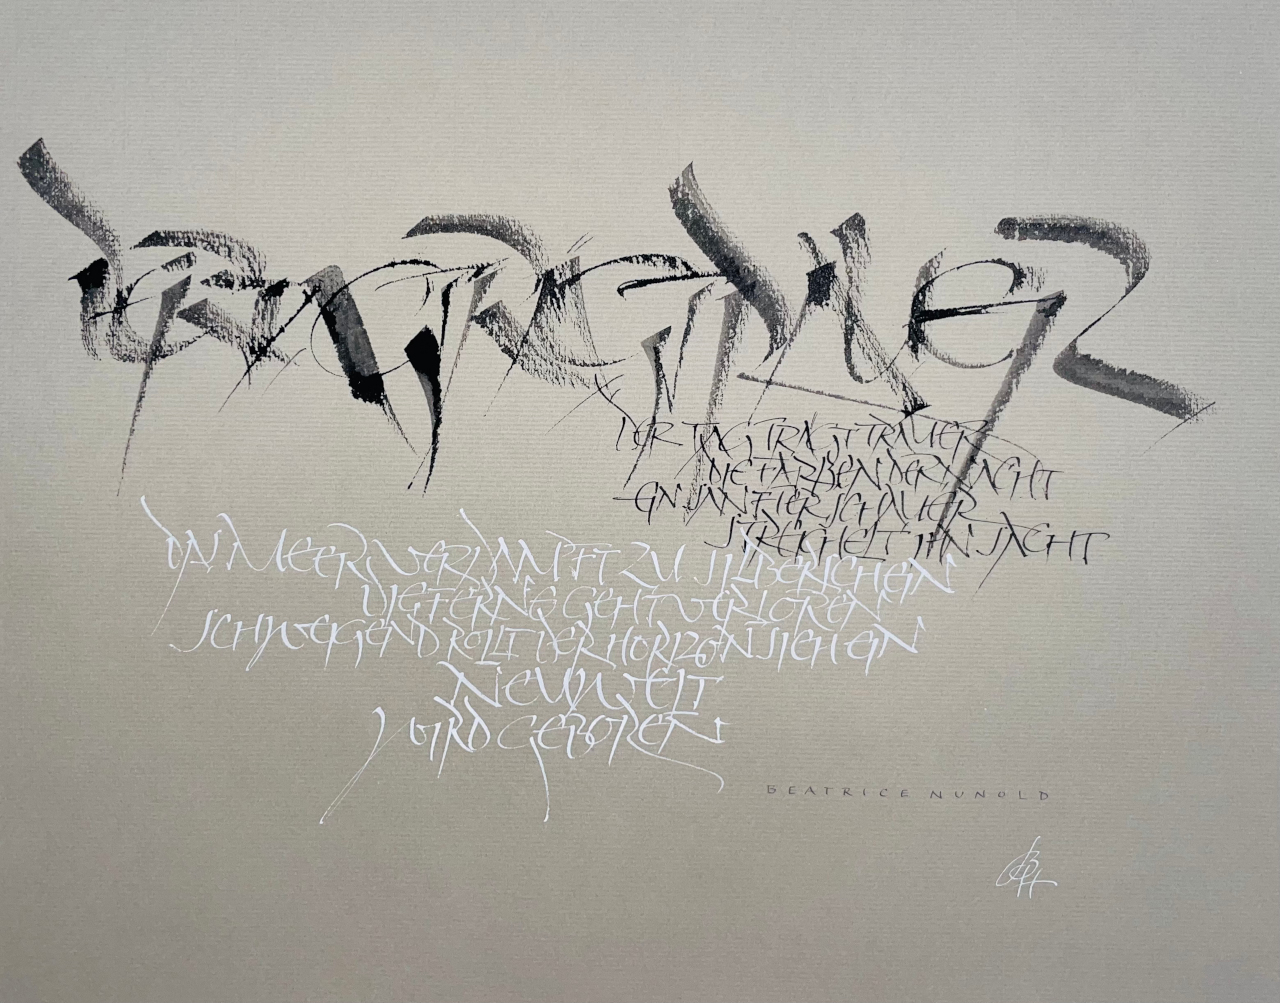 DER TAG TRÄGT TRAUER
DIE FARBEN DER NACHT
EIN SANFTER SCHAUER
STREICHELT IHN SACHT
DAS MEER VERDAMPFT ZU SILBERSCHEIN
DIE FERNE GEHT VERLOREN
SCHWEIGEND ROLLT DER HORIZONT SICH EIN
NEUWELT
WIRD GEBOREN
BEATRICE NUNOLD